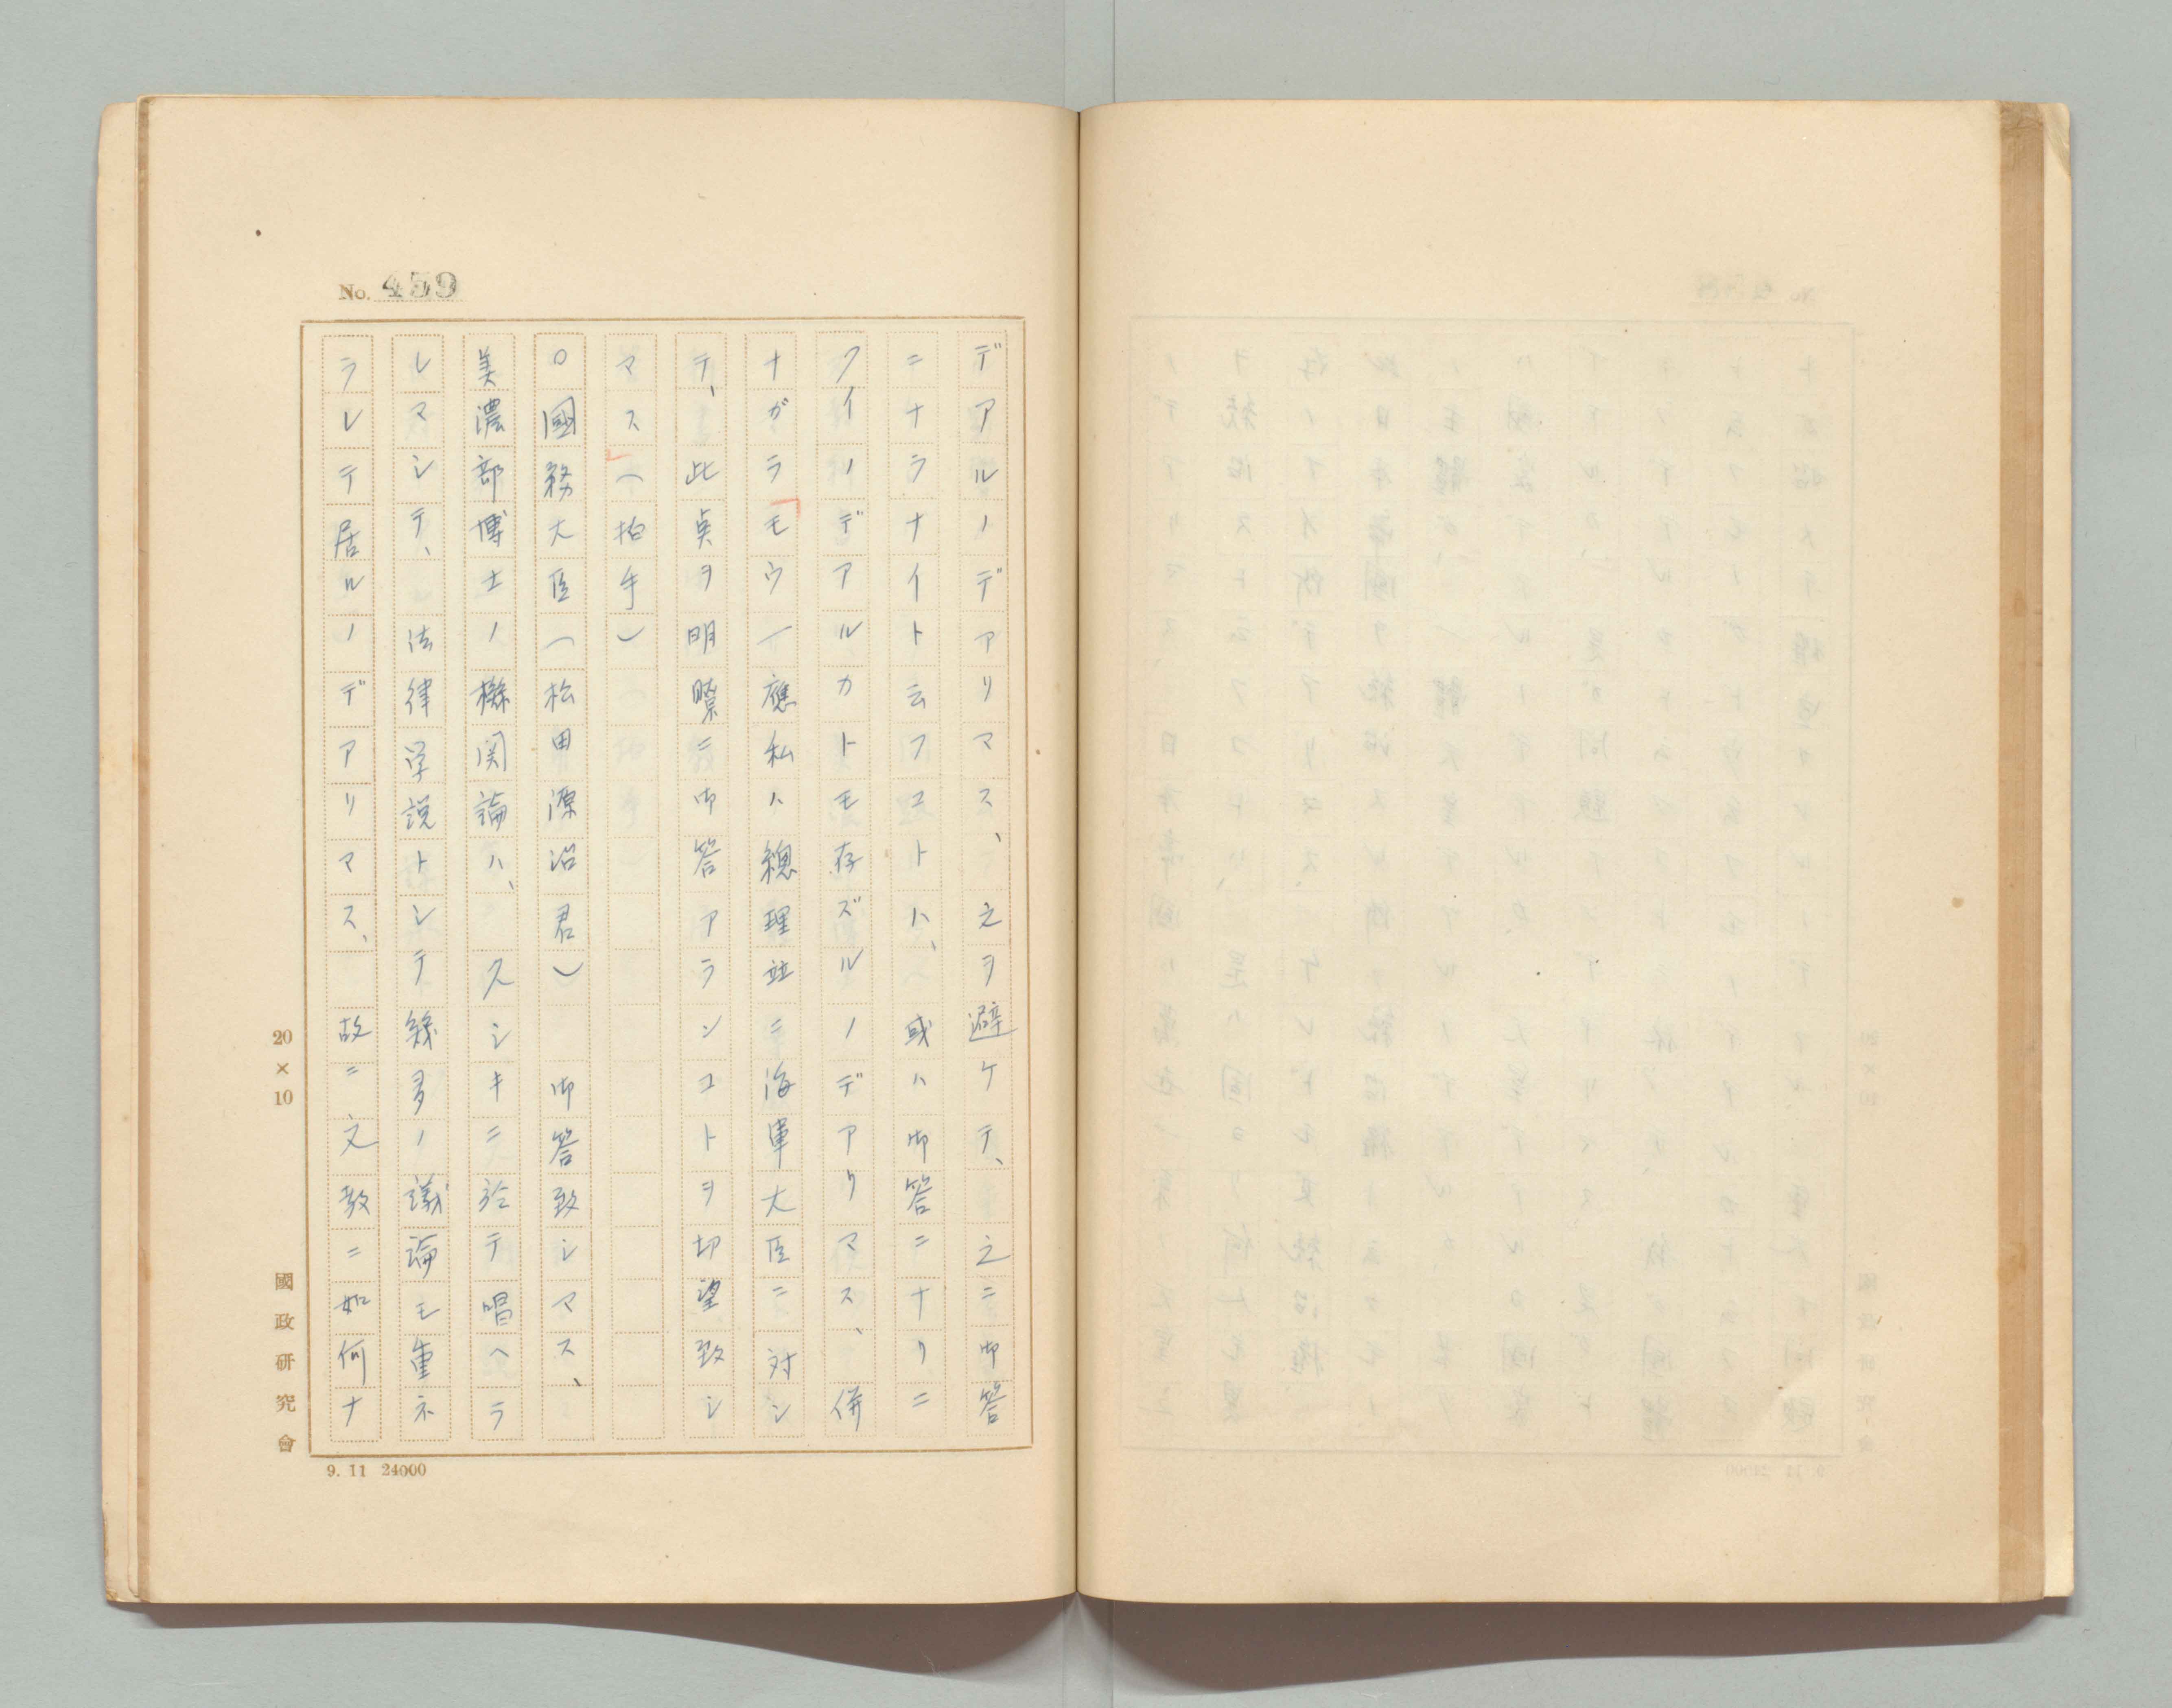 No. 459
デアルノデアリマス、之ヲ避ケテ、之ニ御答
ニナラナイト云フコトハ、或ハ御答ニナリニ
クイノデアルカトモ存ズルノデアリマス、併
ナガラモウ一應私ハ總理並ニ海軍大臣ニ対シ
テ、此点ヲ明瞭ニ御答アランコトヲ切望致シ
マス(拍手)
○國務大臣(松田源治君) 御答致シマス、
美濃部博士ノ機関論ハ、久シキニ於テ唱ヘラ
レマシテ、法律学説トシテ幾多ノ議論モ重ネ
ラレテ居ルノデアリマス、故ニ文教ニ如何ナ
20×10
國政研究會
9. 11 24000